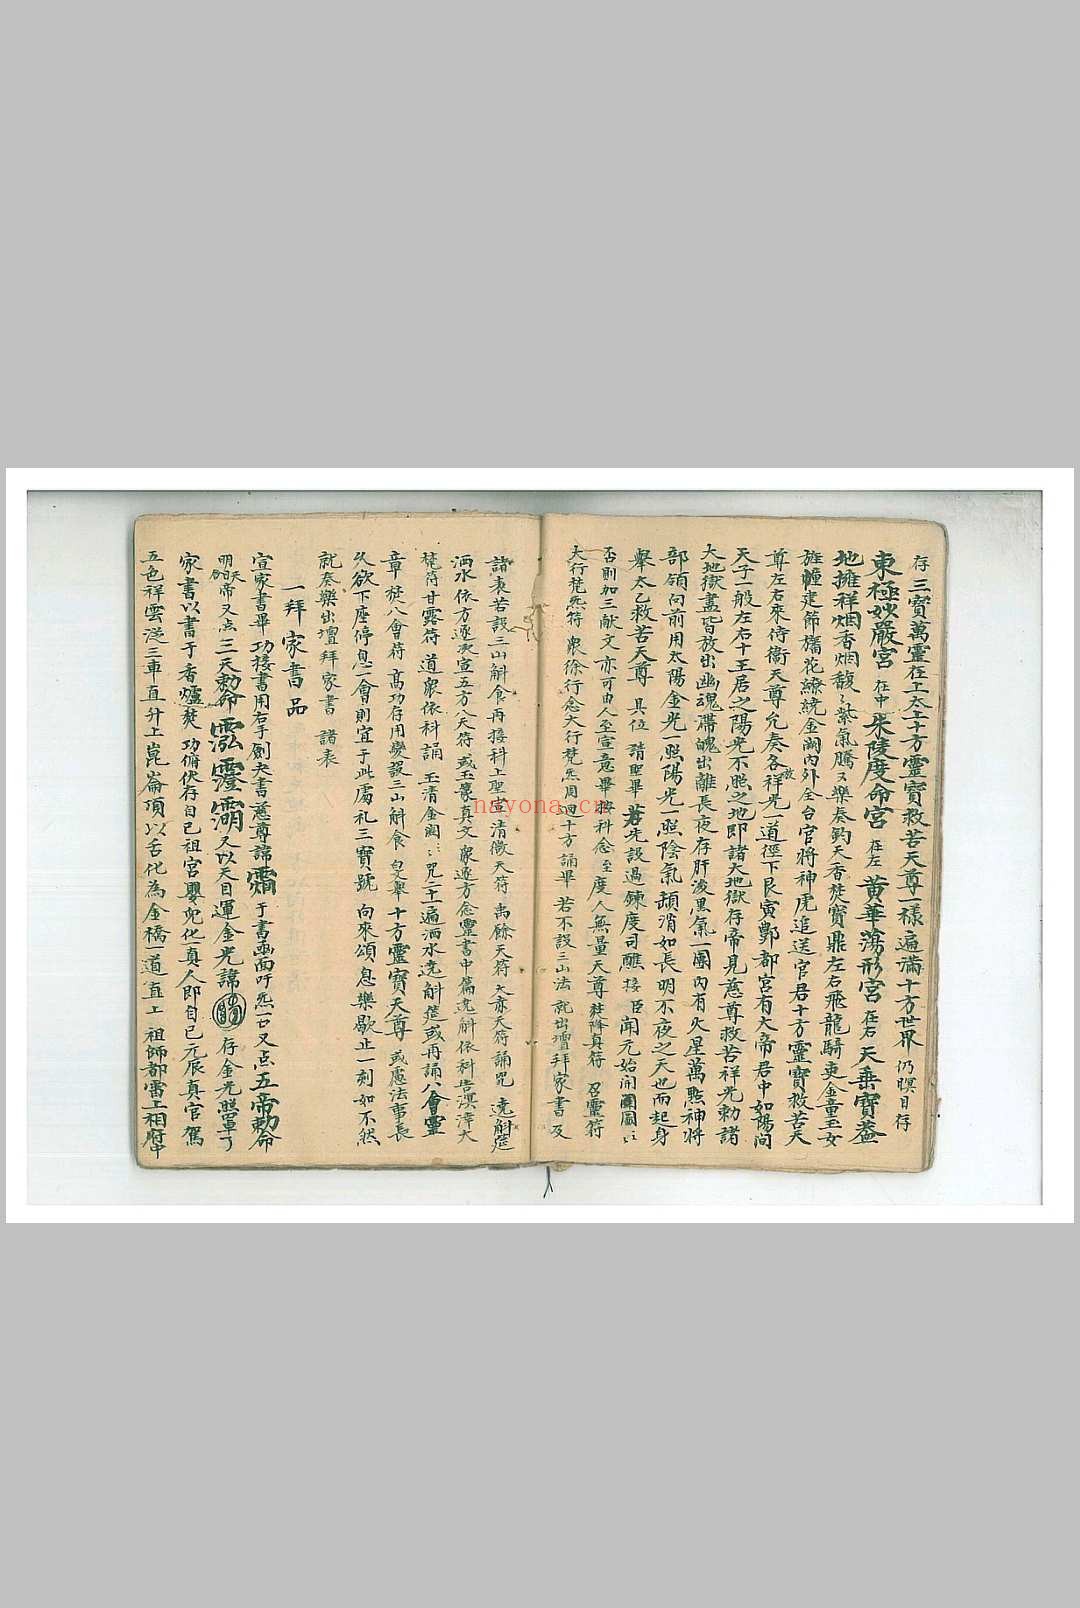 存 三寶萬靈在上太上十方靈寶救苦天尊一樣遍滿十方世界 仍暝目存
東極妙嚴宮 在中 朱陵度命宮 在左 黃華蕩形宮 在右 天乗寶蓋
地擁祥烟香烟馥〻紫氣騰〻樂奏鈞天香焚寶鼎左右飛龍騎吏金童玉女
旌幢建節旛花繚繞金闕內外全台官將神虎追送官君十方靈寶救苦天
尊左右來侍衛天尊允奏各放祥光一道徑下艮寅酆都宮有大帝君中如陽间
天子一般左右十王居之陽光不照之地即諸大地獄存帝見慈尊救苦祥光勅諸
大地獄盡皆放出幽魂滯魄出離長夜存肝後黑氣一團內有火星萬點神將
部領向前用太陽金光一照陽光一照陰氣頓消如長明不夜之天也而起身
舉太乙救苦天尊 具位 請聖畢 若先設過鍊度司醮 接 臣聞元始開圖〻
否則加三献文亦可由人至宣意畢接科念至度人無量天尊 焚降真符 召靈符
大行梵炁符 衆徐行念大行梵炁周廻十方誦畢 若不設三山法 就出壇拜家書及
諸表若設三山斛食再接科上聖宣清微天符禹餘天符大赤天符誦咒 遶斛筵
洒水依方逐次宣五方八天符或玉篆真文衆逐方念靈書中篇遶斛依科告溟涬大
梵符甘露符 道衆依科誦 玉清金闕〻咒二十一遍洒水遶斛筵或再誦八會靈
章焚八會符 高功存用變設三山斛食 皇舉十方靈寶天尊 或慮法事長
久欲下座停息一會則宜于此處礼三寶號 向來頌息樂歇止一刻如不然
就奏樂出壇拜家書 諸表
一拜家書品
宣家書畢功接書用右手劍夬書慈尊諱 于書函面吁炁一口又点五帝勅命
明天帝又点三天勅命 又以天目運金光諱 存金光照罩了
家書以書于香爐焚 功俯伏存自己祖宮嬰兒化真人即自己元辰真官駕
五色祥雲從三車直升上崑崙頂以舌化為金橋一道直上 祖師都雷上相府中
nayona.cn